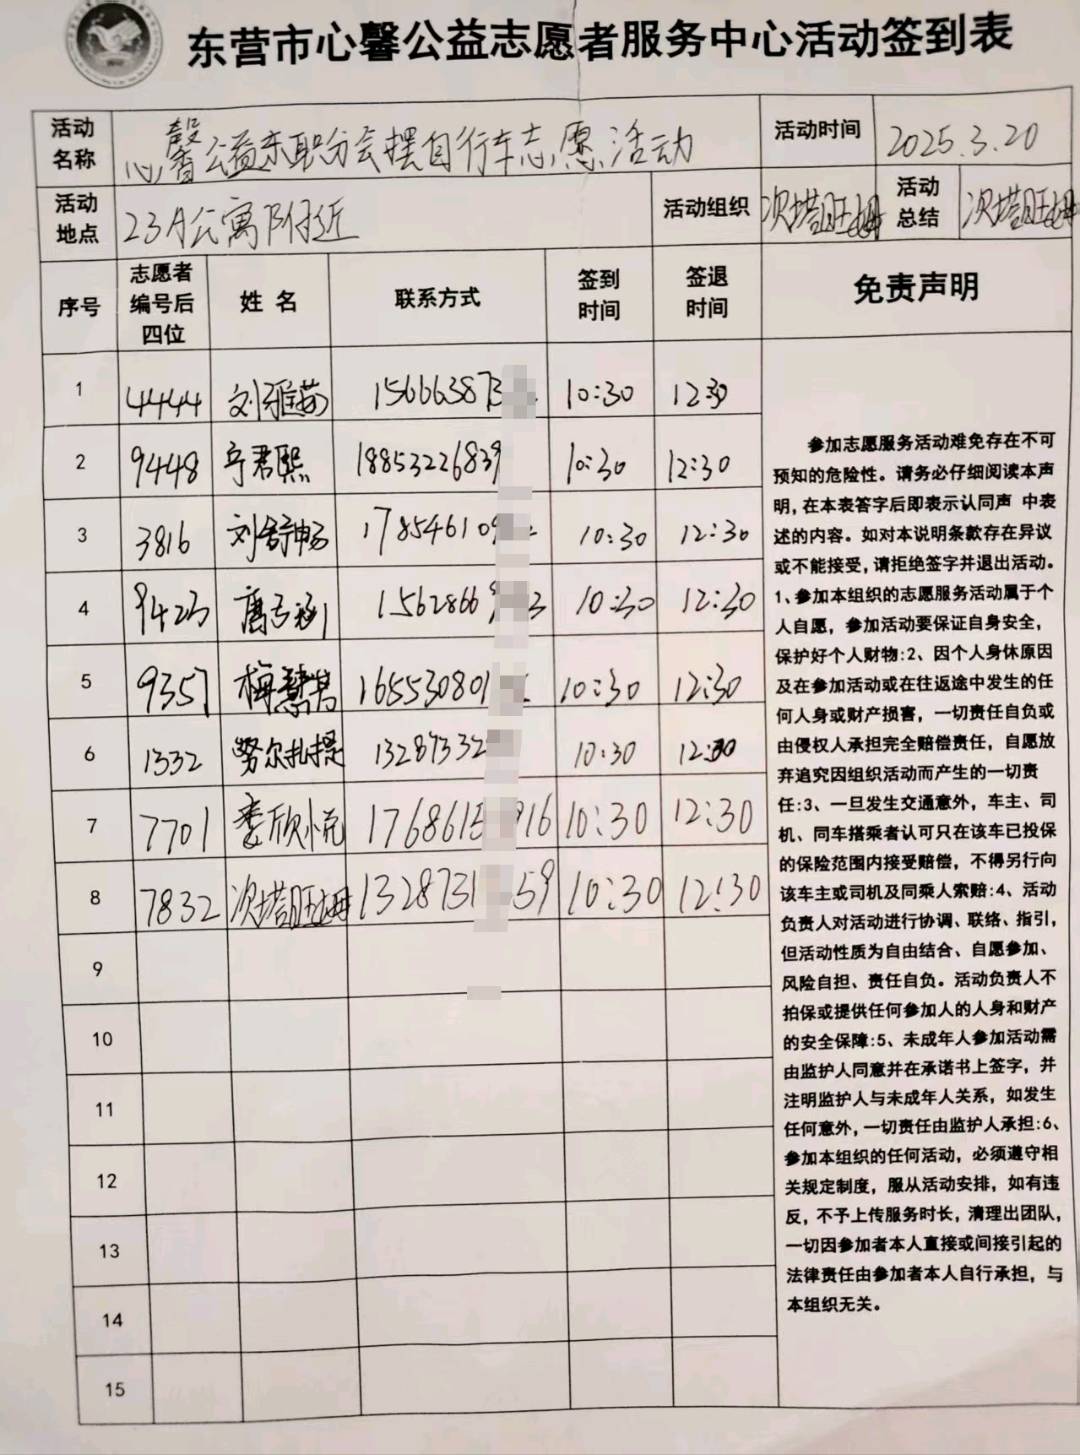 东营市心馨公益志愿者服务中心活动签到表
活动名称 心馨公益东职分会摆自行车志愿活动 活动时间 2025.3.20
活动地点 23A公寓附近 活动组织 次塔旺姆 活动总结 次塔旺姆
序号 志愿者编号后四位 姓名 联系方式 签到时间 签退时间 免责声明
1 4444 刘雅茹 156663873 10:30 12:30
2 9448 于君熙 18853226839 10:30 12:30
3 3816 刘舒畅 178546109 10:30 12:30
4 9423 1562866 3 10:30 12:30
5 9357 梅慧 165530801 10:30 12:30
6 1332 努尔扎提 13287332 10:30 12:30
7 7701 娄欣悦 1768615 916 10:30 12:30
8 7832 次塔旺姆 1328731 59 10:30 12:30
9
10
11
12
13
14
15
参加志愿服务活动难免存在不可
预知的危险性。请务必仔细阅读本声
明,在本表签字后即表示认同声 中表
述的内容。如对本说明条款存在异议
或不能接受,请拒绝签字并退出活动。
1、参加本组织的志愿服务活动属于个
人自愿，参加活动要保证自身安全，
保护好个人财物:2、因个人身体原因
及在参加活动或在往返途中发生的任
何人身或财产损害，一切责任自负或
由侵权人承担完全赔偿责任，自愿放
弃追究因组织活动而产生的一切责
任:3、一旦发生交通意外，车主、司
机、同车搭乘者认可只在该车已投保
的保险范围内接受赔偿，不得另行向
该车主或司机及同乘人索赔:4、活动
负责人对活动进行协调、联络、指引，
但活动性质为自由结合、自愿参加、
风险自担、责任自负。活动负责人不
拍保或提供任何参加人的人身和财产
的安全保障:5、未成年人参加活动需
由监护人同意并在承诺书上签字，并
注明监护人与未成年人关系，如发生
任何意外,一切责任由监护人承担:6、
参加本组织的任何活动，必须遵守相
关规定制度，服从活动安排，如有违
反，不予上传服务时长，清理出团队，
一切因参加者本人直接或间接引起的
法律责任由参加者本人自行承担，与
本组织无关。